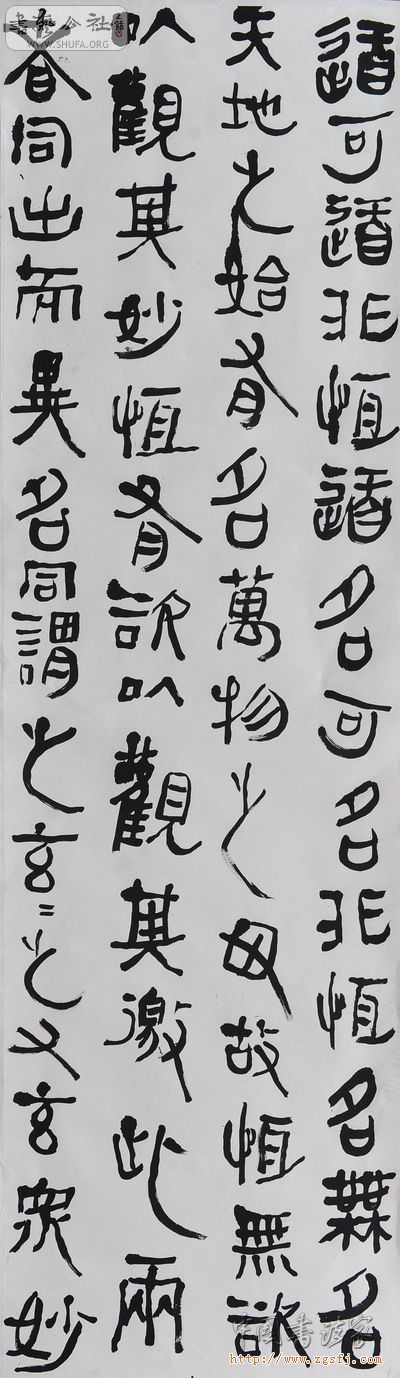 道可道非恆道名可名非恆名無名
天地之始有名萬物之母故恆無欲
以觀其妙恆有欲以觀其徼此兩
者同出而異名同謂之玄〻之又玄衆妙
書藝公社
WWW.SHUFA.ORG
中国书法家
http://www.zgsfj.com